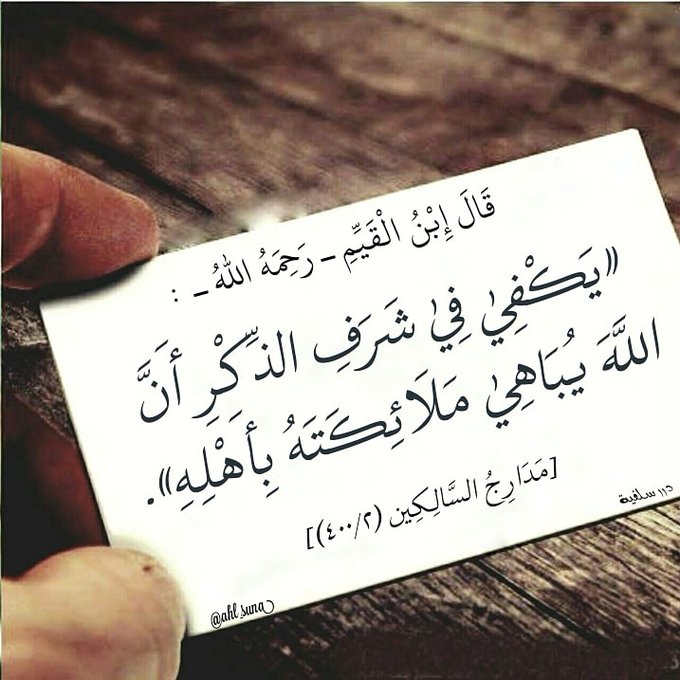 قَالَ إِبْنُ الْقَيِّمِ - رَحِمَهُ اللهُ - :
«يَكْفِيْ فِيْ شَرَفِ الذِّكِْرِ أَنَّ
اللَّهَ يُبَاهِيْ مَلَائِكَتَهُ بِأَهْلِهِ».
[مَدَارِجُ السَّالِكِين (٤٠٠/٢)]
درر سلفية
@ahl_suna